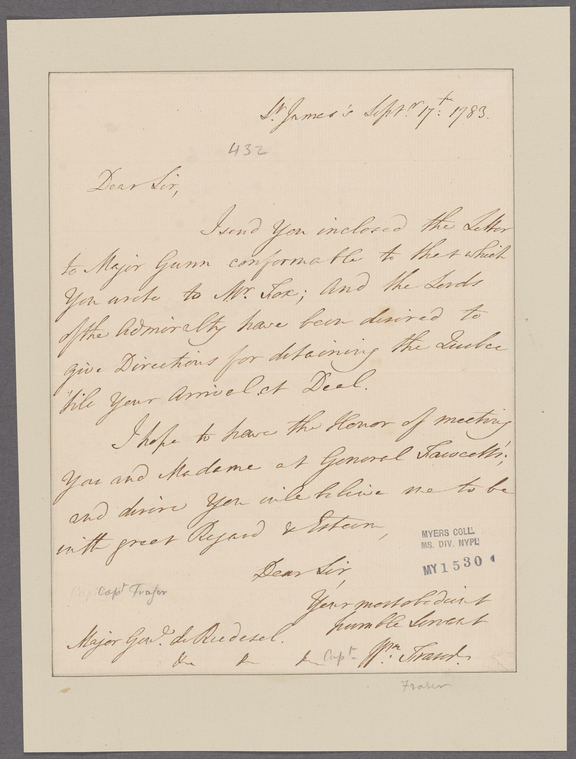 St. James's Septr. 17t: 1783.
432
Dear Sir,
I send You inclosed the Letter
to Major Gunn conformable to that which
You wrote to Mr. Fox; And the Lords
of the Admiralty have been desired to
give Directions for detaining the Quebec
'till Your Arrival at Deal.
I hope to have the Honor of meeting
You and Madame at General Fawcett's;
and desire You will believe me to be
with great Regard & Esteem,
Dear Sir,
Your most obedient
humble Servant
Wm. Fraser.
Capt.
Capt Fraser
Major Genl. de Riedesel.
MYERS COLL.
MS. DIV. NYPL
MY 1530
Fraser